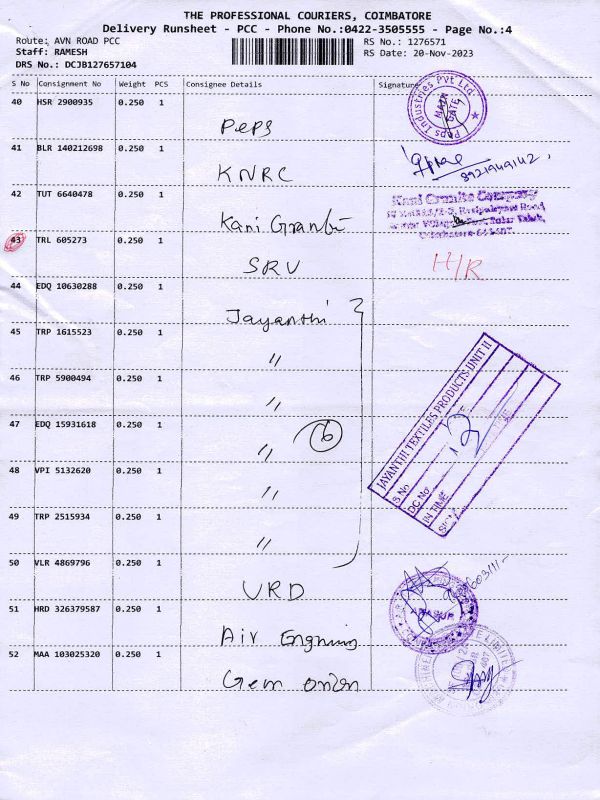 THE PROFESSIONAL COURIERS, COIMBATORE
Delivery Runsheet - PCC - Phone No.:0422-3505555 - Page No.:4
Route: AVN ROAD PCC
RS No.: 1276571
Staff: RAMESH
RS Date: 20-Nov-2023
DRS No.: DCJB127657104
S No Consignment No Weight PCS Consignee Details Signature
40 HSR 2900935 0.250 1 Peps
Peps Industries Pvt Ltd
MAIN GATE
41 BLR 140212698 0.250 1 KNRC
42 TUT 6640478 0.250 1 Kani Granite
Kani Granite Company
43 TRL 605273 0.250 1 SRV H/R
44 EDQ 10630288 0.250 1 Jayanthi
45 TRP 1615523 0.250 1 "
46 TRP 5900494 0.250 1 "
47 EDQ 15931618 0.250 1 " 6
48 VPI 5132620 0.250 1 "
49 TRP 2515934 0.250 1 "
JAYANTHI TEXTILES PRODUCTS UNIT II
S.No
DC No.
IN TIME
50 VLR 4869796 0.250 1 VRD
51 HRD 326379587 0.250 1 Air
52 MAA 103025320 0.250 1 Gem